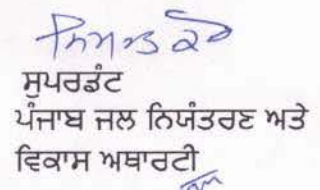 ਸੁਪਰਡੰਟ
ਪੰਜਾਬ ਜਲ ਨਿਯੰਤਰਣ ਅਤੇ
ਵਿਕਾਸ ਅਥਾਰਟੀ